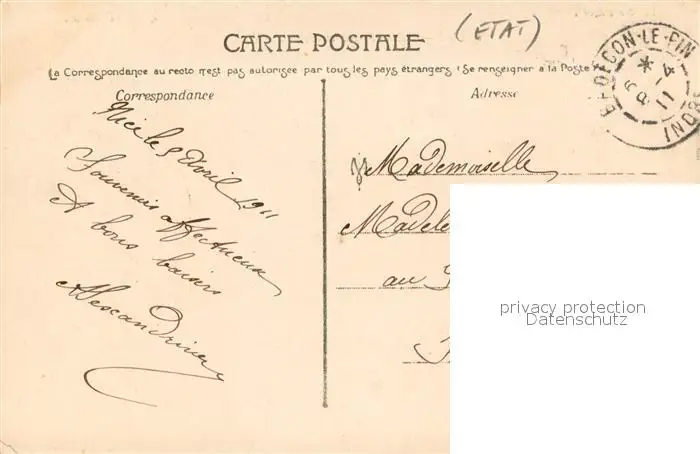 (ETAT)
CARTE POSTALE
La Correspondance au recto n'est pas autorisée par tous les pays étrangers (Se renseigner à la Poste
Correspondance
Nice le 5 Avril 1911
Souvenirs affectueux
et bons baisers
Alexandrine
Adresse
Mademoiselle
Madele
au
privacy protection
Datenschutz